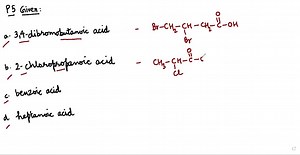 P5 Given:
a. 3,4-dibromobutanoic acid - Br-CH₂-CH-CH₂-C-OH
O
Br
b. 2-chloropropanoic acid - CH₃-CH-C-
O
Cl
c. benzoic acid
d. heptanoic acid